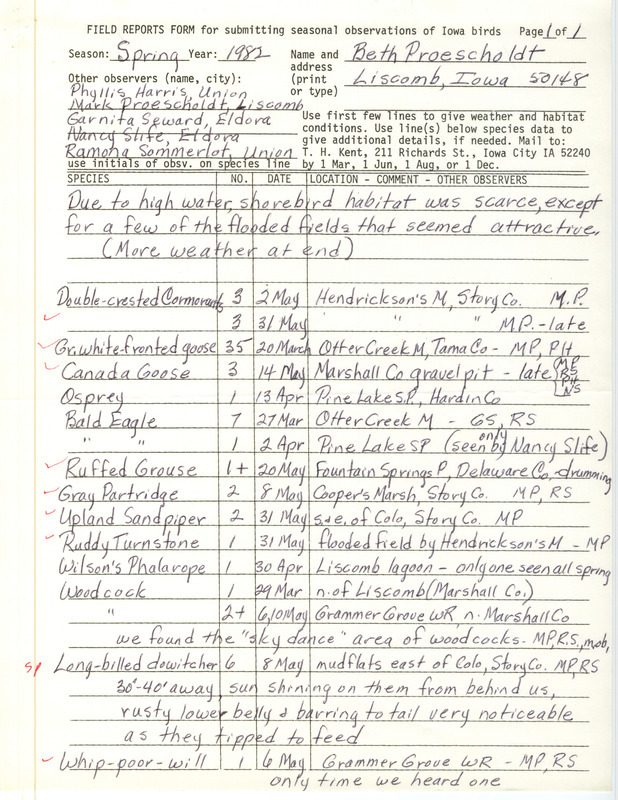 FIELD REPORTS FORM for submitting seasonal observations of Iowa birds Page 1 of 1
Season: Spring Year: 1982 Name and address (print or type) Beth Proescholdt
Liscomb, Iowa 50148
Other observers (name, city):
Phyllis Harris, Union
Mark Proescholdt, Liscomb
Garnita Seward, Eldora
Nancy Slife, Eldora
Ramona Sommerlot, Union
use initials of obsv. on species line
Use first few lines to give weather and habitat
conditions. Use line(s) below species data to
give additional details, if needed. Mail to:
T. H. Kent, 211 Richards St., Iowa City IA 52240
by 1 Mar, 1 Jun, 1 Aug, or 1 Dec.
SPECIES NO. DATE LOCATION - COMMENT - OTHER OBSERVERS
Due to high water, shorebird habitat was scarce, except
for a few of the flooded fields that seemed attractive.
(More weather at end)
Double-crested Cormorants 3 2 May Hendrickson's M, Story Co. M.P.
3 31 May " " M.P. - late
Gr. white-fronted goose 35 20 March Otter Creek M, Tama Co - MP, PH
Canada Goose 3 14 May Marshall Co gravel pit - late MP RS PH NS
Osprey 1 13 Apr Pine Lake SP, Hardin Co
Bald Eagle 7 27 Mar Otter Creek M - GS, RS
" " 1 2 Apr Pine Lake SP (seen only by Nancy Slife)
Ruffed Grouse 1+ 20 May Fountain Springs P, Delaware Co. - drumming
Gray Partridge 2 8 May Cooper's Marsh, Story Co. MP, RS
Upland Sandpiper 2 31 May s. e. of Colo, Story Co. MP
Ruddy Turnstone 1 31 May flooded field by Hendrickson's M - MP
Wilson's Phalarope 1 30 Apr Liscomb lagoon - only one seen all spring
Woodcock 1 29 Mar n. of Liscomb (Marshall Co.)
" 2+ 6,10 May Grammer Grove WR, n. Marshall Co
we found the "sky dance" area of woodcocks. MP, R.S., m.ob.
sp Long-billed dowitcher 6 8 May mudflats east of Colo, Story Co. MP, RS
30'-40' away, sun shining on them from behind us,
rusty lower belly & barring to tail very noticeable
as they tipped to feed
Whip-poor-will 1 6 May Grammer Grove WR - MP, RS
only time we heard one